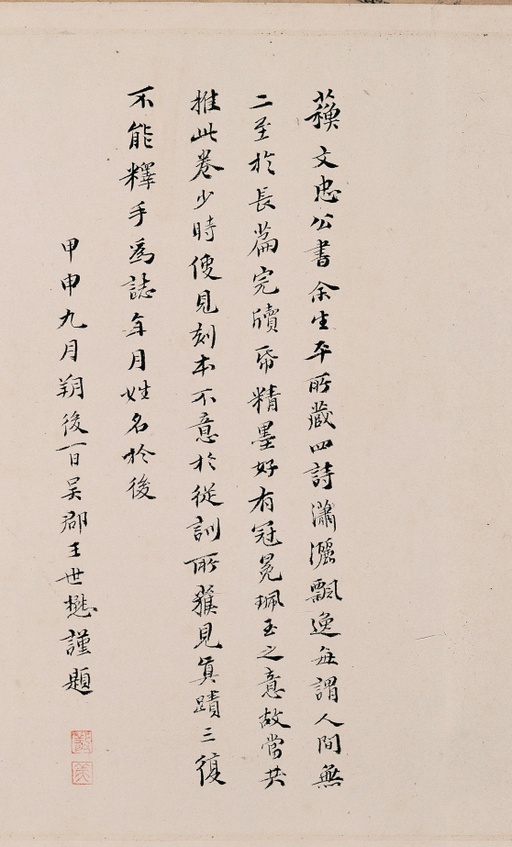 蘓文忠公書余生平所藏四詩瀟灑飄逸每謂人間無
二至於長篇完牘帋精墨好有冠冕珮玉之意故當共
推此卷少時便見刻本不意於從訓所獲見真蹟三復
不能釋手爲誌年月姓名於後
甲申九月朔後一日吴郡王世懋謹題
敬美